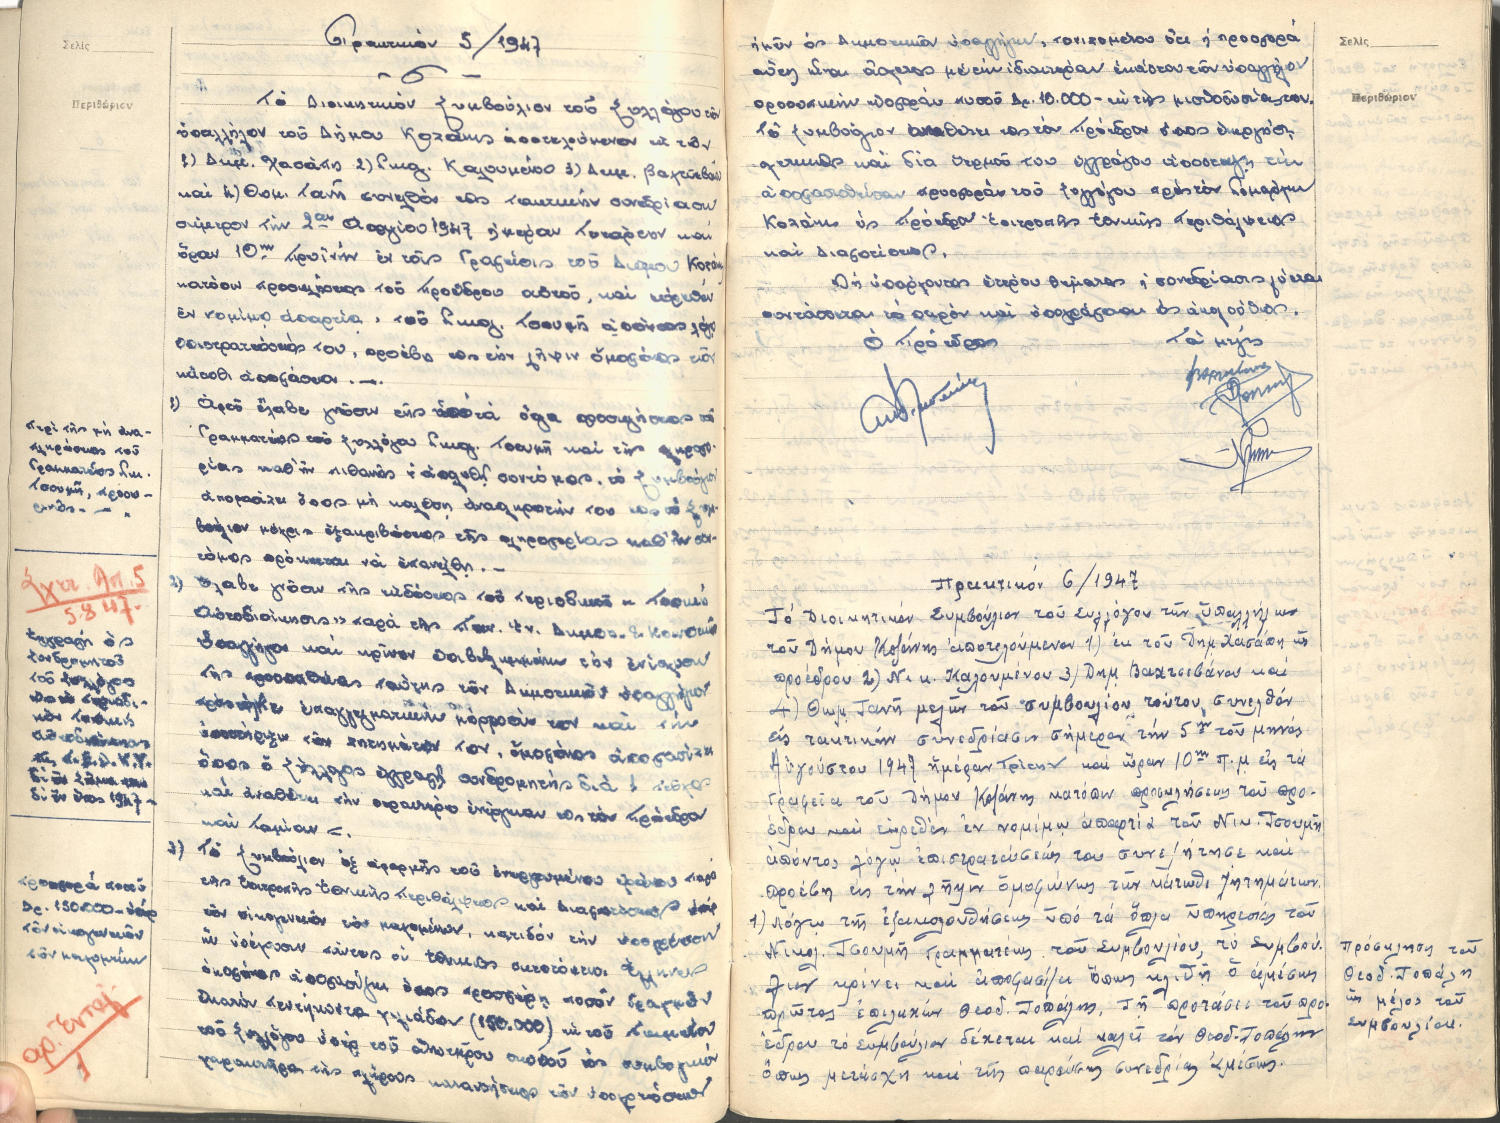 Σελίς
Περιθώριον
Πρακτικόν 5/1947
Τό Διοικητικόν Συμβούλιον τοῦ Συλλόγου τῶν
ὑπαλλήλων τοῦ Δήμου Κοζάνης ἀποτελούμενον ἐκ τῶν
1) Δημ. Χασάπη 2) Νικολ. Καλουμένου 3) Δημ. Βαχτσεβάνου
καί 4) Θωμ. Γανῆ συνελθόν εἰς τακτικήν συνεδρίασιν
σήμερον τήν 2αν Ἀπριλίου 1947 ἡμέραν Τετάρτην καί
ὥραν 10ην πρωϊνήν ἐν τοῖς Γραφείοις τοῦ Δήμου Κοζάνης
κατόπιν προσκλήσεως τοῦ Προέδρου αὐτοῦ, καί εὑρεθέν
ἐν νομίμῳ ἀπαρτίᾳ, τοῦ Νικολ. Τσουμῆ ἀπόντος λόγῳ
ἐπιστρατεύσεώς του, προέβη εἰς τήν λῆψιν ὁμοφώνως τῶν
κάτωθι ἀποφάσεων.
1) Ἀφοῦ ἔλαβε γνῶσιν τῆς ὑπό τά ὅπλα προσκλήσεως τοῦ
Γραμματέως τοῦ Συλλόγου Νικολ. Τσουμῆ καί τῆς πληροφο-
ρίας καθ' ἥν πιθανῶς ἀπολυθῇ συντόμως, τό Συμβούλιον
ἀποφασίζει ὅπως μή καλέσῃ ἀναπληρωτήν του εἰς τό Συμ-
βούλιον μέχρις ἐξακριβώσεως τῆς πληροφορίας καθ' ἥν συν-
τόμως πρόκειται νά ἐπανέλθῃ.
2) Ἔλαβε γνῶσιν τῆς ἐκδόσεως τοῦ περιοδικοῦ «Τοπική
Αὐτοδιοίκησις» παρά τῆς Παν. Ἑν. Δημοτ. & Κοινοτικῶν
Ὑπαλλήλων καί κρῖνον ἐπιβεβλημένην τήν ἐνίσχυσιν
τῆς προσπαθείας ταύτης τῶν Δημοτικῶν ὑπαλλήλων
ἐπαγγελματικήν μόρφωσίν των καί τήν
ὑποστήριξιν τῶν ζητημάτων των, ὁμοφώνως ἀποφασίζει
ὅπως ὁ Σύλλογος ἐγγραφῇ συνδρομητής διά 1 τεῦχος
καί ἀναθέτει τήν περαιτέρω ἐνέργειαν εἰς τόν Πρόεδρον
καί Ταμίαν.
3) Τό Συμβούλιον ἐξ ἀφορμῆς τοῦ ἐνεργουμένου ἐράνου παρά
τῆς Ἐπιτροπῆς Ἐθνικῆς Περιθάλψεως καί Διαφωτίσεως ὑπέρ
τῶν οἰκογενειῶν τῶν μαχομένων, κατιδόν τήν ὑποχρέωσιν
ἥν ὑπέχουσιν πάντες οἱ ἐθνικῶς σκεπτόμενοι Ἕλληνες
ὁμοφώνως ἀποφασίζει ὅπως προσφέρῃ ποσόν δραχμῶν
ἑκατόν πεντήκοντα χιλιάδων (150.000) ἐκ τοῦ Ταμείου
τοῦ Συλλόγου ὑπέρ τοῦ ἀνωτέρου σκοποῦ ὡς συμβολικόν
χαρακτῆρα τῆς πλήρους κατανοήσεως τῶν ὑποχρεώσεων
Περί τῆς μή ἀνα-
πληρώσεως τοῦ
Γραμματέως Νικ.
Τσουμῆ, προσω-
ρινῶς
Σχετ. Ἀπ. 5
5.8.47
Ἐγγραφή ὡς
συνδρομητοῦ
τοῦ Συλλόγου
εἰς τό περιοδι-
κόν Τοπική
Αὐτοδιοίκησις
δι' ἕν ἔτος 1947
Προσφορά ποσοῦ
Δρ. 150.000 ὑπέρ
τῶν οἰκογενειῶν
τῶν μαχομένων
ἀρ. Ἐνταλ.
1
ἡμῶν ὡς Δημοτικῶν ὑπαλλήλων, τονιζομένου ὅτι ἡ προσφορά
αὕτη εἶναι ἄσχετος μέ τήν ἰδιαιτέραν ἑκάστου τῶν ὑπαλλήλων
προσωπικήν εἰσφοράν ποσοῦ Δρ. 10.000 ἐκ τῆς μισθοδοσίας των.
Τό Συμβούλιον ἀναθέτει εἰς τόν Πρόεδρον ὅπως ἐνεργήσῃ
σχετικῶς καί διά θερμοῦ του ἐγγράφου ἀποστείλῃ τήν
ἀποφασισθεῖσαν προσφοράν τοῦ Συλλόγου πρός τόν Νομάρχην
Κοζάνης ὡς Πρόεδρον Ἐπιτροπῆς Ἐθνικῆς Περιθάλψεως
καί Διαφωτίσεως.
Μή ὑπάρχοντος ἑτέρου θέματος ἡ συνεδρίασις λύεται
συντάσσεται τό παρόν καί ὑπογράφεται ὡς ἀκολούθως.
Ὁ Πρόεδρος Τά μέλη
Πρακτικόν 6/1947
Τό Διοικητικόν Συμβούλιον τοῦ Συλλόγου τῶν ὑπαλλήλων
τοῦ Δήμου Κοζάνης ἀποτελούμενον 1) ἐκ τοῦ Δημ. Χασάπη ὡς
προέδρου 2) Νικ. Καλουμένου 3) Δημ. Βαχτσεβάνου καί
4) Θωμ. Γανῆ μελῶν τοῦ συμβουλίου τούτου, συνελθόν
εἰς τακτικήν συνεδρίασιν σήμερον τήν 5ην τοῦ μηνός
Αὐγούστου 1947 ἡμέραν Τρίτην καί ὥραν 10ην π.μ. εἰς τά
Γραφεῖα τοῦ Δήμου Κοζάνης κατόπιν προσκλήσεως τοῦ προ-
έδρου καί εὑρεθέν ἐν νομίμῳ ἀπαρτίᾳ τοῦ Νικ. Τσουμῆ
ἀπόντος λόγῳ ἐπιστρατεύσεώς του συνεζήτησε καί
προέβη εἰς τήν λῆψιν ὁμοφώνως τῶν κάτωθι ζητημάτων.
1) Λόγῳ τῆς ἐξακολουθήσεως ὑπό τά ὅπλα ὑπηρεσίας τοῦ
Νικολ. Τσουμῆ Γραμματέως τοῦ Συμβουλίου, τό Συμβού-
λιον κρίνει καί ἀποφασίζει ὅπως κληθῇ ὁ ἀμέσως
πρῶτος ἐπιλαχών Θεοδ. Τοπάλης. Τῇ προτάσει τοῦ προ-
έδρου τό Συμβούλιον δέχεται καί καλεῖ τόν Θεοδ. Τοπάλην
ὅπως μετάσχῃ καί τῆς παρούσης συνεδρίας ἀμέσως.
Σελίς
Περιθώριον
Πρόσκλησις τοῦ
Θεοδ. Τοπάλη
ὡς μέλος τοῦ
Συμβουλίου.